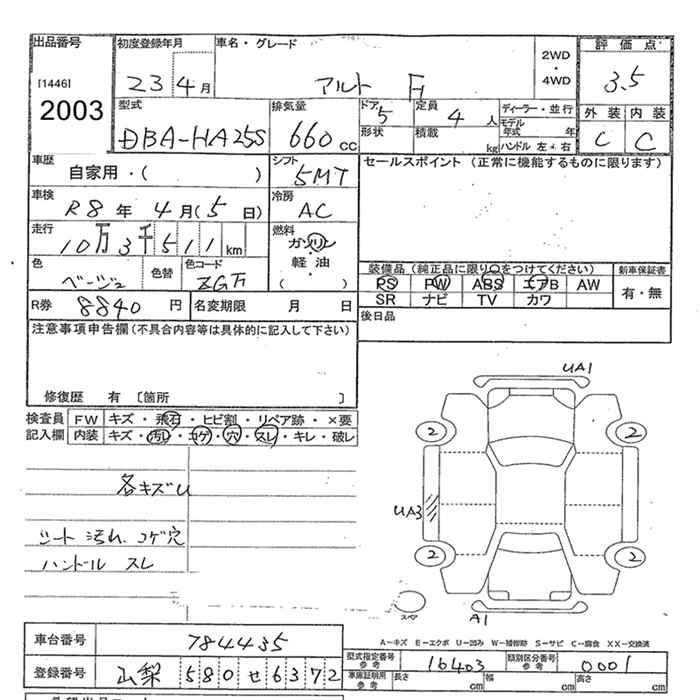 出品番号 初度登録年月 車名・グレード 2WD・4WD 評価点
[1446] 23 4月 アルト F 3.5
2003
型式 排気量 ドア 5 定員 4人 ディーラー・並行 外装 内装
DBA-HA25S 660cc 形状 積載 kg モデル年式 年 C C
ハンドル 左・右
車歴 シフト セールスポイント(正常に機能するものに限ります)
自家用・( ) 5MT
車検 冷房
R8年 4月(5日) AC
走行 燃料
10万3千511km ガソリン・軽油
( )
色 色替 色コード 装備品(純正品に限り○をつけてください) 新車保証書
ベージュ ZGF PS PW ABS エアB AW 有・無
R券 8840円 名変期限 月 日 SR ナビ TV カワ
注意事項申告欄(不具合内容等は具体的に記入して下さい) 後日品
修復歴 有 [箇所 ]
検査員記入欄 FW キズ・飛石・ヒビ割・リペア跡・×要
内装 キズ・汚レ・コゲ・穴・スレ・キレ・破レ
各キズU
シート 汚れ、コゲ穴
ハンドル スレ
UA1
2 2
UA3
2 2
スペア A1
A-キズ E-エクボ U-凹み W-補修跡 S-サビ C-腐食 XX-交換済
車台番号 784435
型式指定番号 参考 16403 類別区分番号 参考 0001
登録番号 山梨 580 せ 6372
車庫証明用 参考 長さ cm 幅 cm 高さ cm